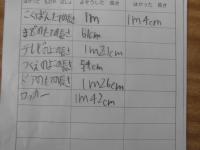 はかった もの や ばしょ よそうした 長さ はかった 長さ
こくばんのたての長さ 1m 1m4cm
まどのたての長さ 61cm
テレビのよこの長さ 1m21cm
つくえのよこの長さ 54cm
ドアのたての長さ 1m26cm
ロッカー 1m42cm